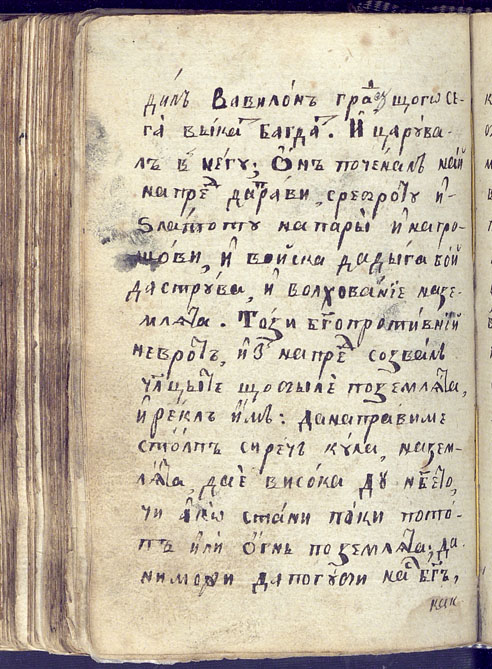 дилъ Вавилѡ́нъ гра́д щогѡ се-
га̀ выка Багда . И҆ царува-
лъ в не́гу; О҆́нъ поченалъ най
напре да пра́ви, среброту и҆
зла́тоту на пары̀ и҆ на гро-
шове, и҆ войска да дыга бой
да струва, и҆ волхова́нїе на зе-
млѧта . То́зи бг҃опроти́внїй
невротъ, и҆ напре созвалъ
що былѐ по землѧта,
и҆ ре́клъ и҆мъ: да направиме
сто́лпъ сиречъ кула, на зем-
лѧ́та, да е҆̀ висо́ка ду не́бето,
чи а҆́кѡ ста́ни па́ки пото́-
пъ и҆лѝ о҆́гнь по землѧта, да
ни може да погуби на бг҃ъ,
как